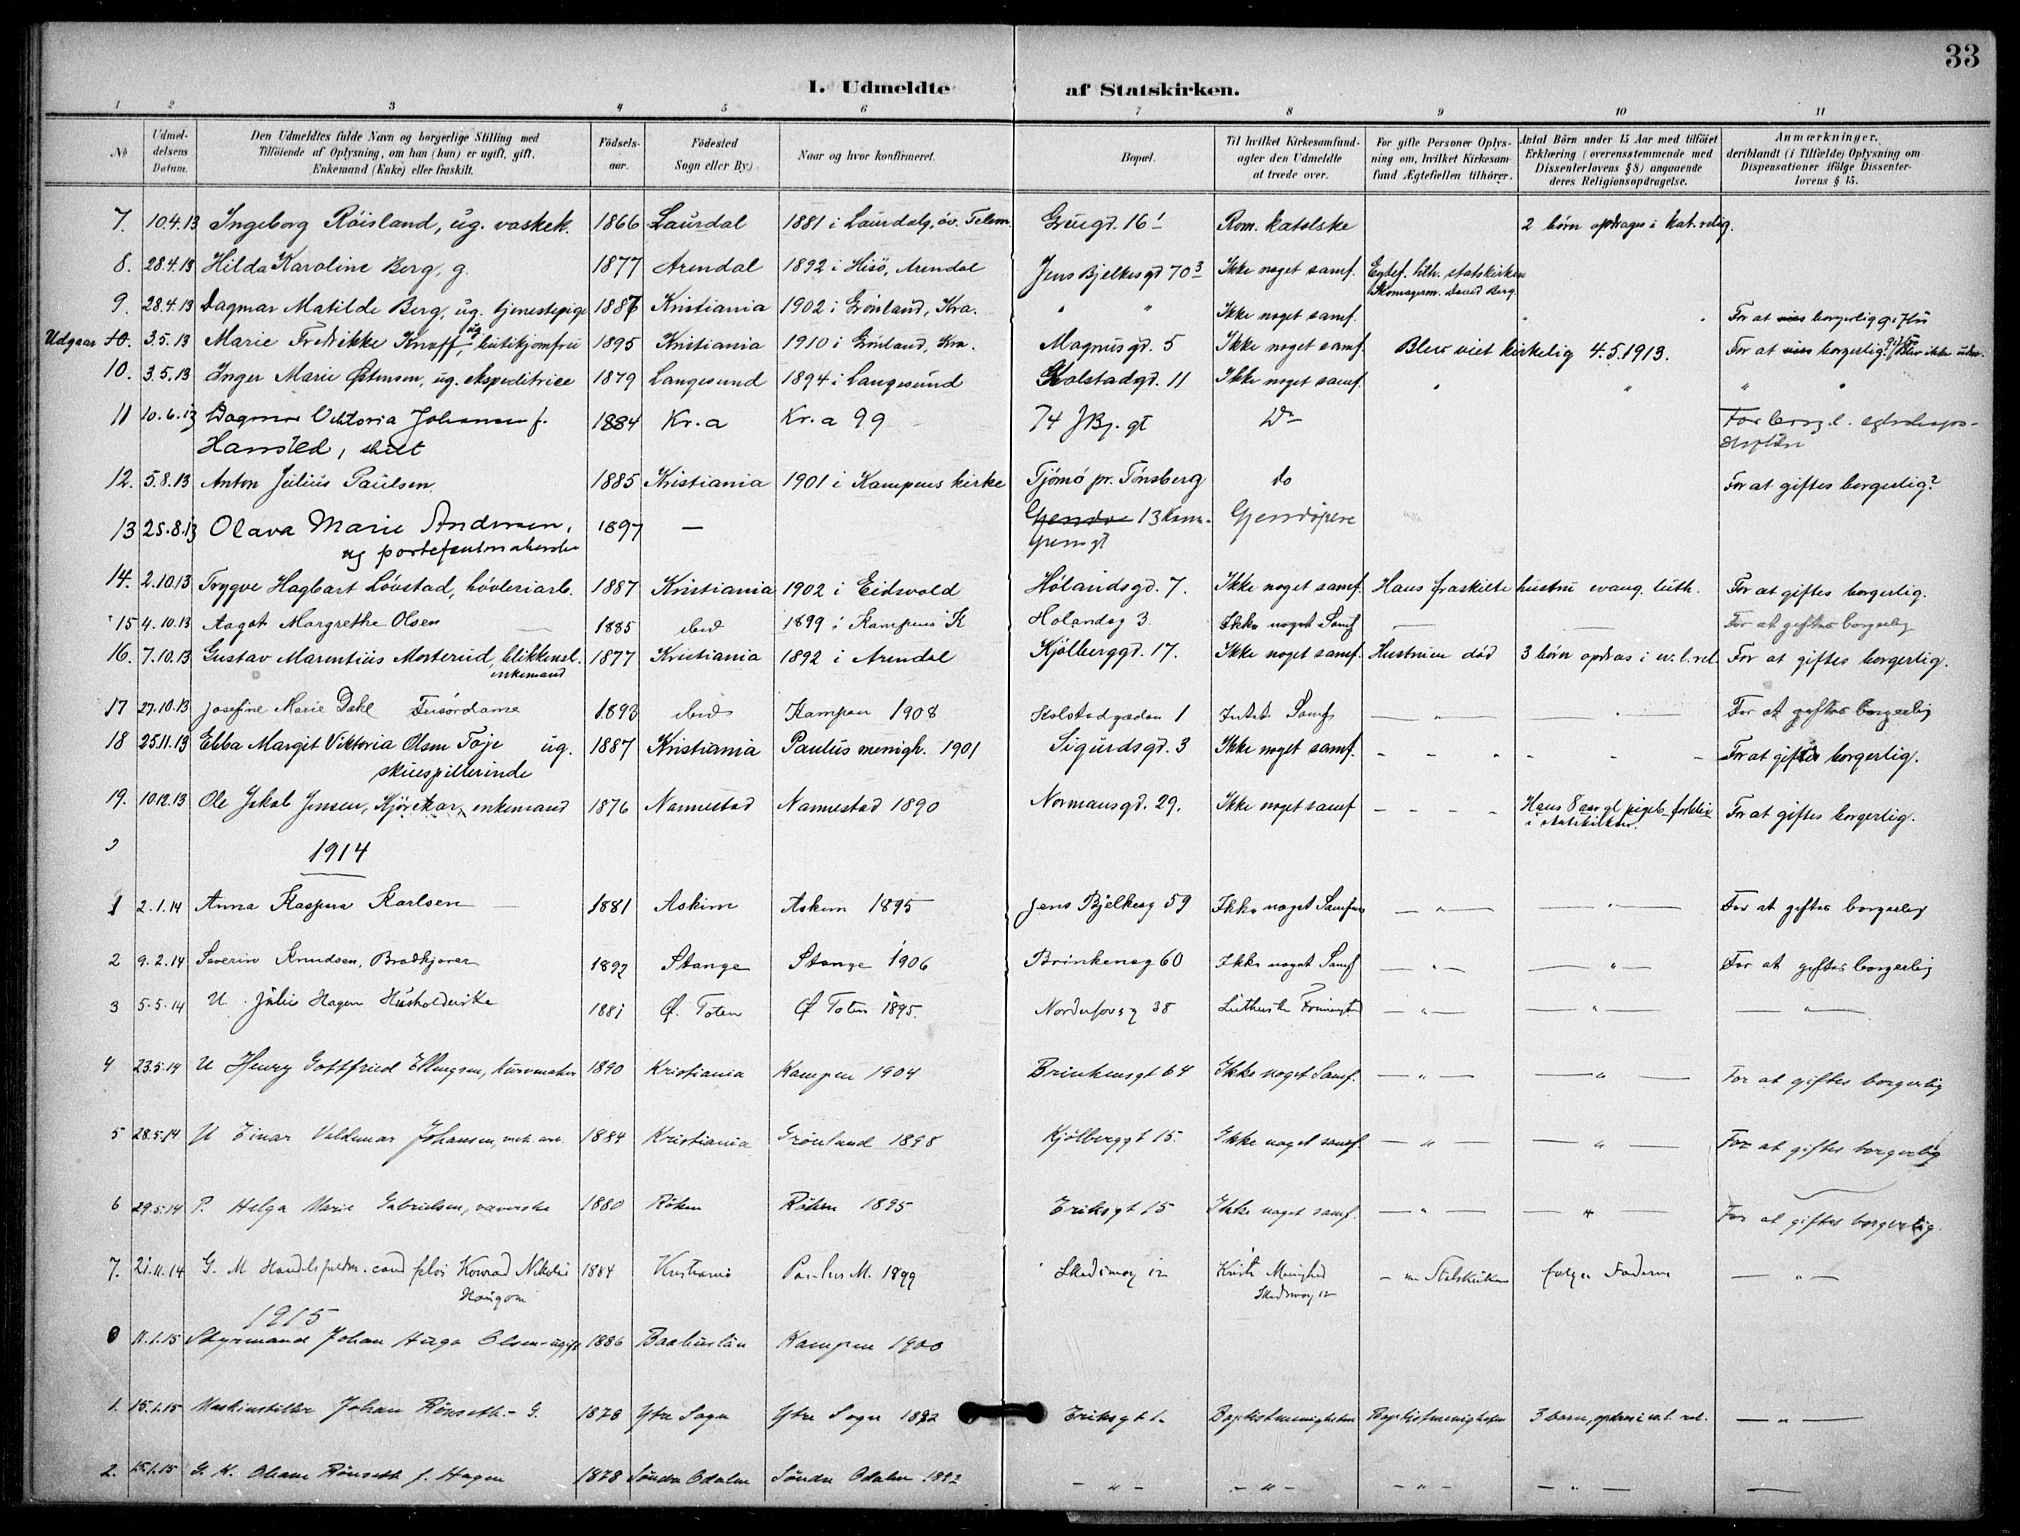 33
I. Udmeldte af Statskirken.
1 2 3 4 5 6 7 8 9 10 11
No
Udmeldelsens Datum.
Den Udmeldtes fulde Navn og borgerlige Stilling med
Tilföiende af Oplysning, om han (hun) er ugift, gift,
Enkemand (Enke) eller fraskilt.
Födselsaar.
Födested
Sogn eller By.
Naar og hvor konfirmeret.
Bopæl.
Til hvilket Kirkesamfund
agter den Udmeldte
at træde over.
For gifte Personer Oplysning om, hvilket Kirkesamfund Ægtefællen tilhörer.
Antal Börn under 15 Aar med tilföiet
Erklæring (overensstemmende med
Dissenterlovens § 8) angaaende
deres Religionsopdragelse.
Anmærkninger,
deriblandt (i Tilfælde) Oplysning om
Dispensationer ifölge Dissenterlovens § 15.
7. 10.4.13 Ingeborg Röisland, ug. vaskek. 1866 Laurdal 1881 i Laurdal, öv. Telem. Grügd. 16 Rom. katolske 2 börn opdrages i kat. relig.
8. 28.4.13 Hilda Karoline Berg, g. 1877 Arendal 1892 i Hisö, Arendal Jens Bjelkesgd 70 3 Ikke noget samf. Egtef. tilh. statskirken
Skomagerm. David Berg.
9. 28.4.13 Dagmar Matilde Berg, ug. tjenestepige 1887 Kristiania 1902 i Grönland, Kra. " " Ikke noget samf. For at borgerlig giftes
Udgaar 10. 3.5.13 Marie Fredrikke Knoff, ug. butikjomfru 1895 Kristiania 1910 i Grönland, Kra. Magnusgd. 5 Ikke noget samf. Blev viet kirkelig 4.5.1913. For at borgerlig giftes
10. 3.5.13 Inger Marie Östensen, ug. ekspeditrice 1879 Langesund 1894 i Langesund Kolstadgd. 11 Ikke noget samf. " " " "
11 10.6.13 Dagmar Viktoria Johansen f. 1884 Kr.a Kr.a 99 74 J Bj. gt Do
Hansted, skilt
12. 5.8.13 Anton Julius Paulsen. 1885 Kristiania 1901 i Kampens kirke Tjömö pr. Tönsberg do For at giftes borgerlig?
13 25.8.13 Olava Marie Andersen, 1897 — 13 Kam- Gjendöpere
ug
14. 2.10.13 Trygve Hagbart Lövstad, hövleriarb. 1887 Kristiania 1902 i Eidsvold Hölandsgd. 7. Ikke noget samf. Hans fraskilte hustru evang. luth. For at giftes borgerlig.
15 4.10.13 Aagot Margrethe Olsen 1885 ibid 1899 i Kampens K Holandsg 3. Ikke noget Samf — — For at giftes borgerlig
16. 7.10.13 Gustav Marentius Mosterud, blikkensl. 1877 Kristiania 1892 i Arendal Kjölberggd. 17. Ikke noget samf. Hustruen död 3 börn opdras i ev. l. rel. For at giftes borgerlig.
enkemand
17 27.10.13 Josefine Marie Dahl Frisördame 1893 ibid Kampen 1908 Kolstadgaden 1 Intet Samf — " — — " — For at giftes borgerlig
18 25.11.13 Ebba Margit Viktoria Olsen Töje ug. 1887 Kristiania Paulus menigh. 1901 Sigurdsgd. 3 Ikke noget samf. - - " - - - For at giftes borgerlig.
skuespillerinde
19. 10.12.13 Ole Jakob Jensen, Kjörekar, enkemand 1876 Nannestad Nannestad 1890 Normansgd. 29. Ikke noget samf - - - - Hans 8 aar gl. pigeb. forbliv For at giftes borgerlig.
i statskirken.
1914
1 2.1.14 Anna Kaspara Karlsen — 1881 Askim Askim 1895 Jens Bjelkesg 59 Ikke noget Samfun — " — — " — For at giftes borgerlig
2 9.2.14 Severin Knudsen, Brödkjörer 1892 Stange Stange 1906 Brinkensg 60 Ikke noget Samf — " — — " — For at giftes borgerlig
3 5.5.14 U. Julie Hagen Husholderske 1881 Ø. Toten Ø Toten 1895. 38 Luthersk Frimenighed — " — — " — — " —
4 23.5.14 U Henry Gottfried Ellingsen, kurvmaker 1890 Kristiania Kampen 1904 Brinkensgt 64 Ikke noget Samf. — " — — " — For at giftes borgerlig
5 28.5.14 U Einar Valdemar Johansen, mek. arb. 1884 Kristiania Grönland 1898 Kjölberggt 15. Ikke noget samf — " — — " — For at giftes borgerlig
6 29.5.14 P. Helga Marie Gabrielsen, væverske 1880 Röken Röken 1895 Eriksgt 15 Ikke noget samf. — " — — " — For at giftes borgerlig.
7. 21.11.14 G. M Konrad Nikolai 1884 Kristiania Paulus M. 1899 Skedsmog 12 Menighed Statskirken følger Faderen — " —
Skedsmog 12
1915
0 11.1.15 Styrmand Johan Hugo Olsen - ugift 1886 Baahuslän Kampen 1900
1. 15.1.15 Maskinstiller Johan Rönseth - G. 1878 Ytre Sogn Ytre Sogn 1892 Eriksgt 1. Baptistmenigheten Baptistmenigheten 3 barn, opdras i ev. l. rel. — " —
2. 15.1.15 G. K. Oliane Rönseth f. Hagen 1878 Söndre Odalen Söndre Odalen 1892 - " - - " - - " - - " - —